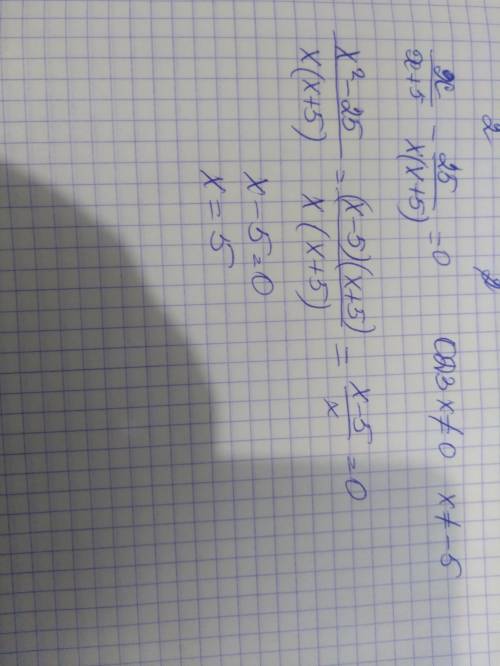 x/(x+5) - 25/(x(x+5)) = 0 ОДЗ x≠0 x≠-5
(x²-25)/(x(x+5)) = ((x-5)(x+5))/(x(x+5)) = (x-5)/x = 0
x-5=0
x=5